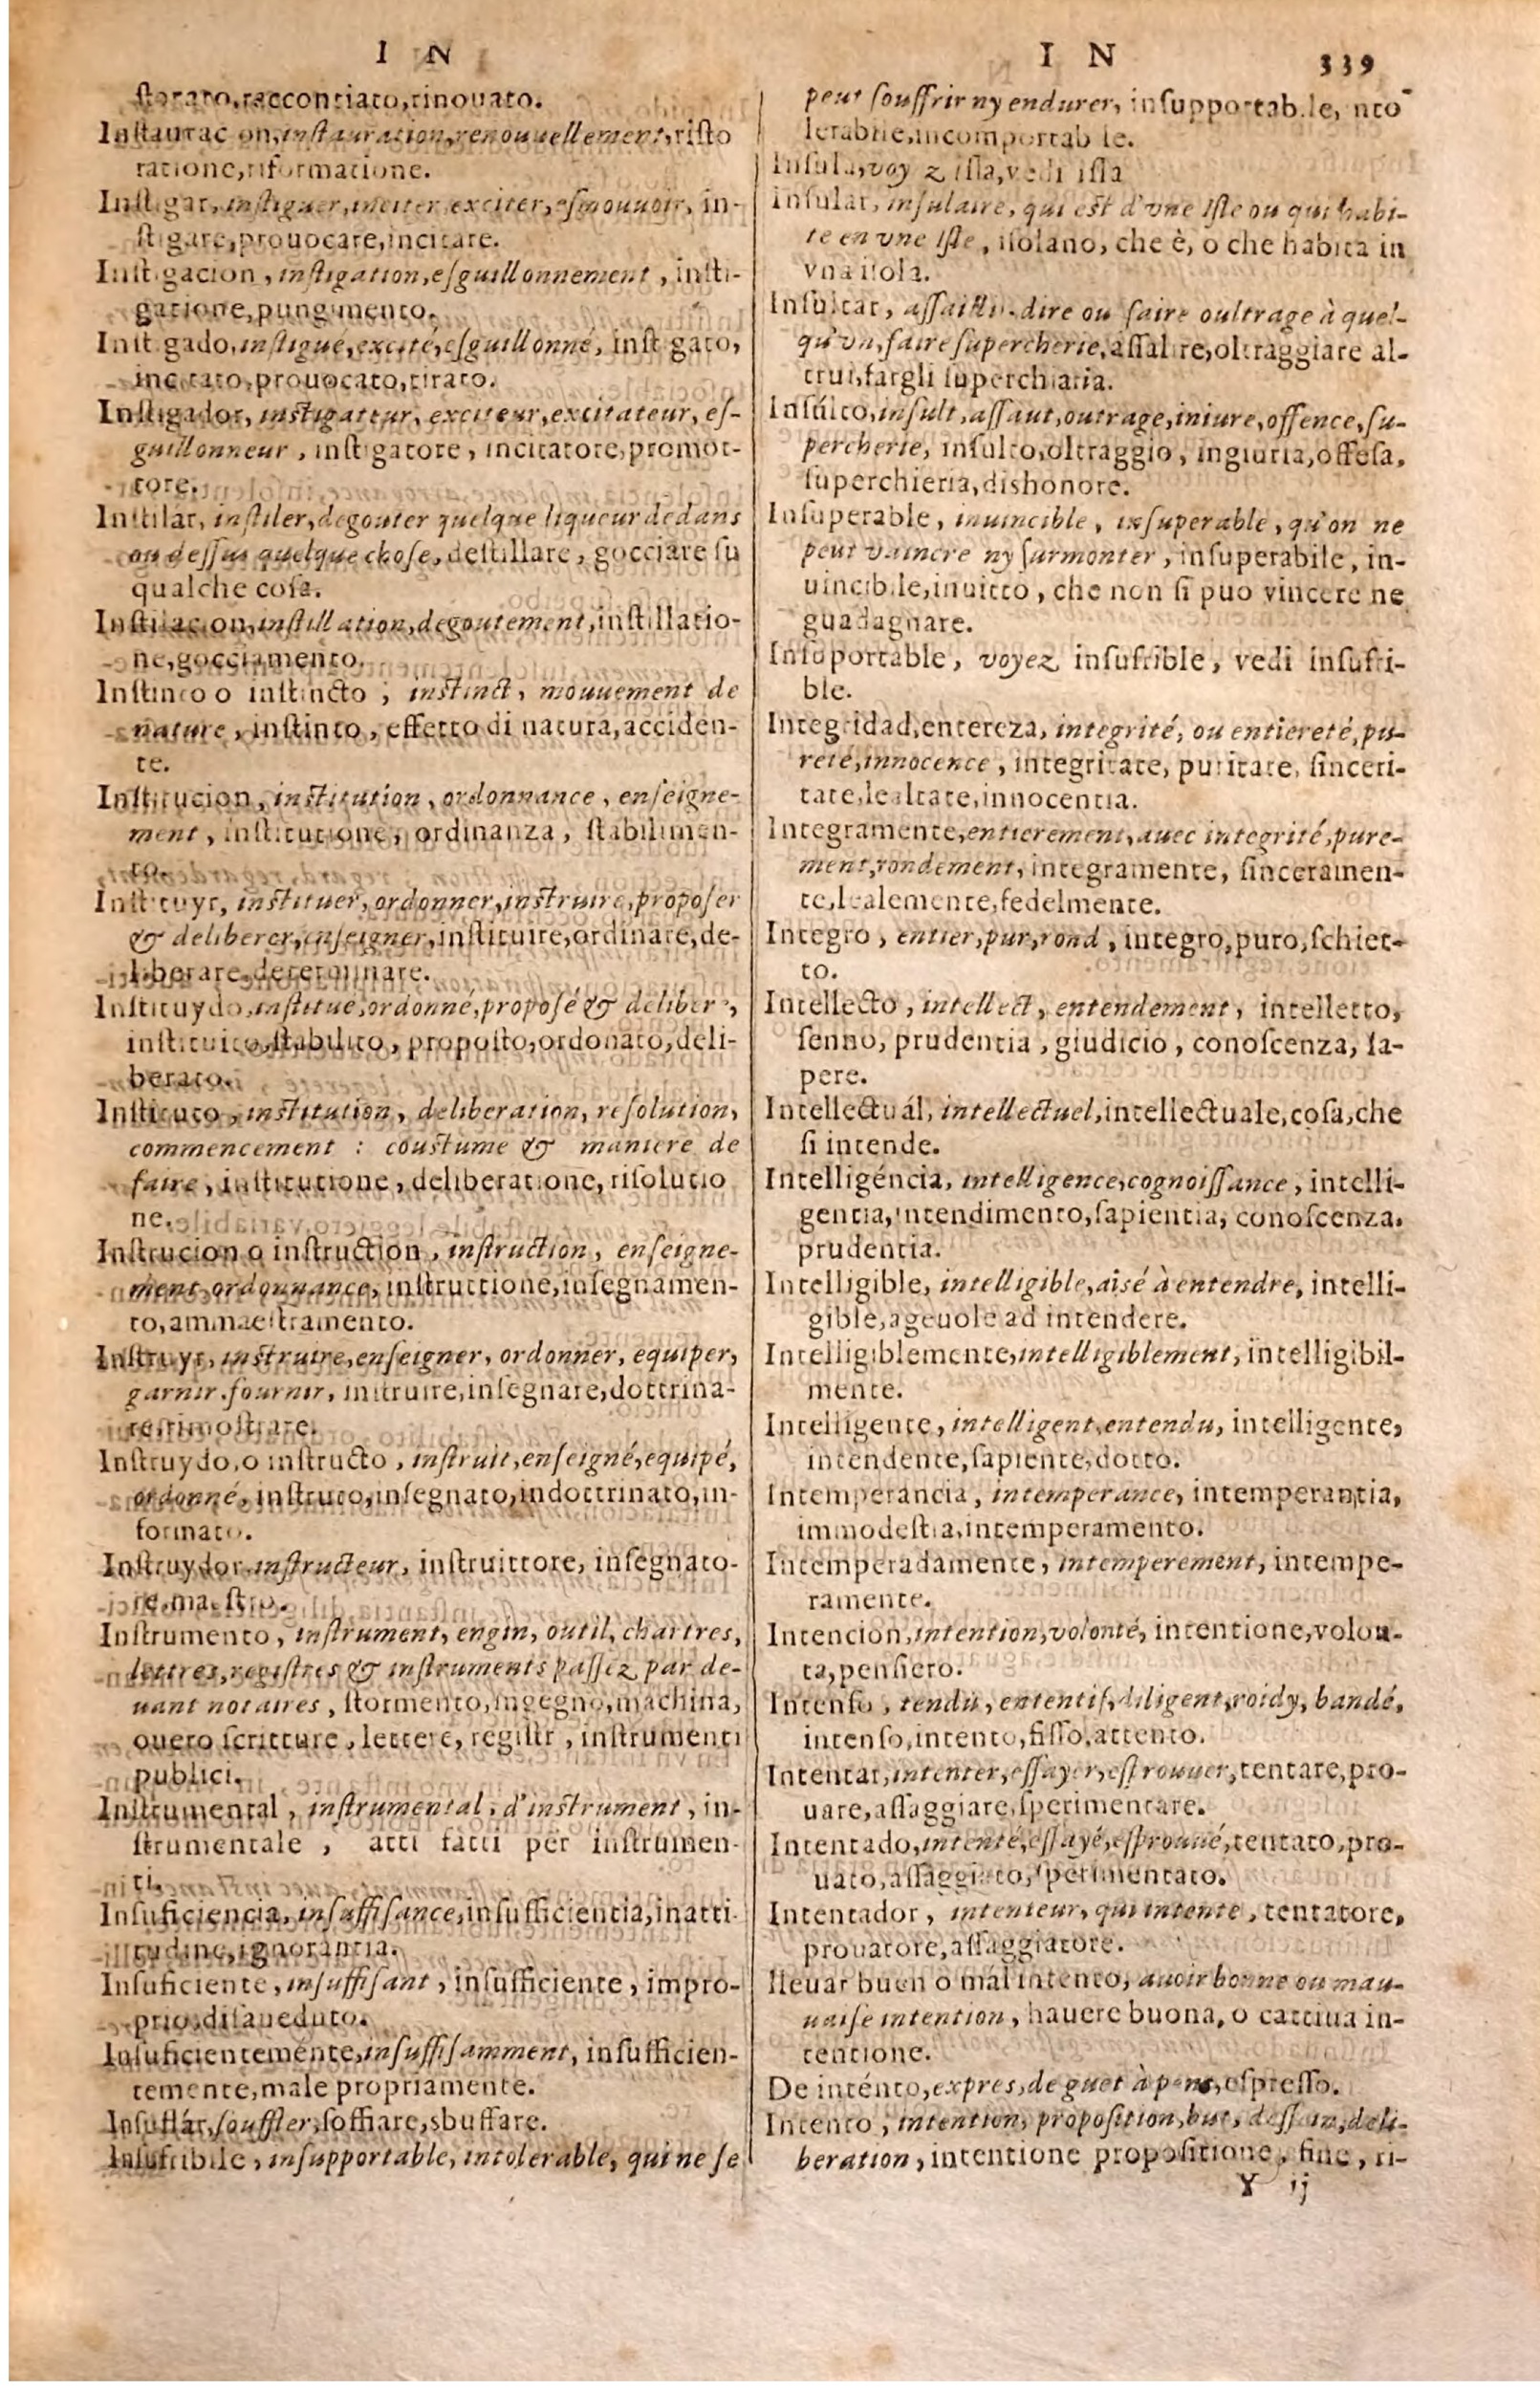 I N
ſtorato,raccontiato,rinouato.
Inſtaurac on,inſtauration,renouuellement,riſto
ratione,riformatione.
Inſtigar,inſtiguer,inciter,exciter,eſmouuoir, in-
ſt gare,prouocare,incitare.
Inſtigacion, inſtigation,eſguillonnement, inſti-
gatione,pungimento.
Inſt gado,inſtigué,excité,eſguillonné, inſt gato,
incitato,prouocato,tirato.
Inſtigador, inſtigateur, exciteur,excitateur, eſ-
guillonneur, inſtigatore, incitatore,promot-
tore.
Inſtilar, inſtiler,degouter quelque liqueur dedans
ou deſſus quelque choſe, deſtillare, gocciare ſu
qualche coſa.
Inſtilacion,inſtillation,degoutement,inſtillatio-
ne,gocciamento.
Inſtinto o inſtincto, inſtinct, mouuement de
nature, inſtinto, effetto di natura,acciden-
te.
Inſtitucion, inſtitution, ordonnance, enſeigne-
ment, inſtitutione, ordinanza, ſtabilimen-
to.
Inſt tuyr, inſtituer,ordonner,inſtruire,propoſer
& deliberer,enſeigner,inſtituire,ordinare,de-
liberare,determinare.
Inſtituydo,inſtitué,ordonné,propoſé & deliber,
inſtituito,ſtabilito, propoſto,ordonato,deli-
berato.
Inſtituto, inſtitution, deliberation, reſolution,
commencement : couſtume & maniere de
faire, inſtitutione, deliberatione, riſolutio
ne.
Inſtrucion o inſtruction, inſtruction, enſeigne-
ment,ordonnance, inſtruttione,inſegnamen-
to,ammaeſtramento.
Inſtruyr, inſtruire,enſeigner, ordonner, equiper,
garnir.fournir, inſtruire,inſegnare,dottrina-
re,rimoſtrare.
Inſtruydo,o inſtructo, inſtruit,enſeigné,equipé,
ordonné, inſtruto,inſegnato,indottrinato,in-
formato.
Inſtruydor,inſtructeur, inſtruittore, inſegnato-
re,maeſtro.
Inſtrumento, inſtrument, engin, outil, chartres,
lettres,regiſtres & inſtruments paſſez par de-
uant notaires, ſtormento,ingegno,machina,
ouero ſcritture, lettere, regiſtr, inſtrumenti
publici.
Inſtrumental, inſtrumental, d'inſtrument, in-
ſtrumentale, atti fatti per inſtrumen-
ti.
Inſuficiencia,inſuffiſance,inſufficientia,inatti
tudine,ignorantia.
Inſuficiente,inſuffiſant, inſufficiente, impro-
prio,diſaueduto.
Inſuficientemente,inſuffiſamment, inſufficien-
temente,male propriamente.
Inſuflár,ſouffler,ſoffiare,sbuffare.
Inſufribile, inſupportable, intolerable, qui ne ſe
I N 339
peut ſouffrir ny endurer, inſupportab.le, nto
lerabile,incomportab le.
Inſula,voy z iſla,vedi iſla
Inſular, inſulaire, qui eſt d'vne Iſle ou qui habi-
te en vne Iſle, iſolano, che è, o che habita in
vna iſola.
Inſultar, aſſaillir.dire ou faire oultrage à quel-
qu'vn,faire ſupercherie,aſſalire,oltraggiare al-
trui,fargli ſuperchiaria.
Inſúlto,inſult,aſſaut,outrage,iniure,offence,ſu-
percherie, inſulto,oltraggio, ingiuria,offeſa,
ſuperchieria,dishonore.
Inſuperable, inuincible, inſuperable, qu'on ne
peut vaincre ny ſurmonter, inſuperabile, in-
uincibile,inuitto, che non ſi puo vincere ne
guadagnare.
Inſuportable, voyez inſufrible, vedi inſufri-
ble.
Integridad,entereza, integrité, ou entiereté,pu-
reté,innocence, integritate, puritate, ſinceri-
tate,lealtate,innocentia.
Integramente,entierement,auec integrité,pure-
ment,rondement, integramente, ſinceramen-
te,lealemente,fedelmente.
Integro, entier,pur,rond, integro,puro,ſchiet-
to.
Intellecto, intellect, entendement, intelletto,
ſenno, prudentia, giudicio, conoſcenza, ſa-
pere.
Intellectuál, intellectuel,intellectuale,coſa,che
ſi intende.
Intelligéncia, intelligence,cognoiſſance, intelli-
gentia,intendimento,ſapientia, conoſcenza.
prudentia.
Intelligible, intelligible,aisé à entendre, intelli-
gible,ageuole ad intendere.
Intelligiblemente,intelligiblement, intelligibil-
mente.
Intelligente, intelligent,entendu, intelligente,
intendente,ſapiente,dotto.
Intemperancia, intemperance, intemperantia,
immodeſtia,intemperamento.
Intemperadamente, intemperement, intempe-
ramente.
Intencion,intention,volonté, intentione,volon-
ta,penſiero.
Intenſo, tendu, ententif,diligent,roidy, bandé,
intenſo,intento,fiſſo,attento.
Intentar,intenter,eſſayer,eſprouuer,tentare,pro-
uare,aſſaggiare,ſperimentare.
Intentado,intenté,eſſayé,eſprouué,tentato,pro-
uato,aſſaggiato,ſperimentato.
Intentador, intenteur, qui intente, tentatore,
prouatore,aſſaggiatore.
lleuar buen o mál intento, auoir bonne ou mau-
uaiſe intention, hauere buona, o cattiua in-
tentione.
De inténto,expres,de guet à pens,eſpreſſo.
Intento, intention, propoſition,but, deſſein,deli-
beration, intentione propoſitione, fine, ri-
Y ij